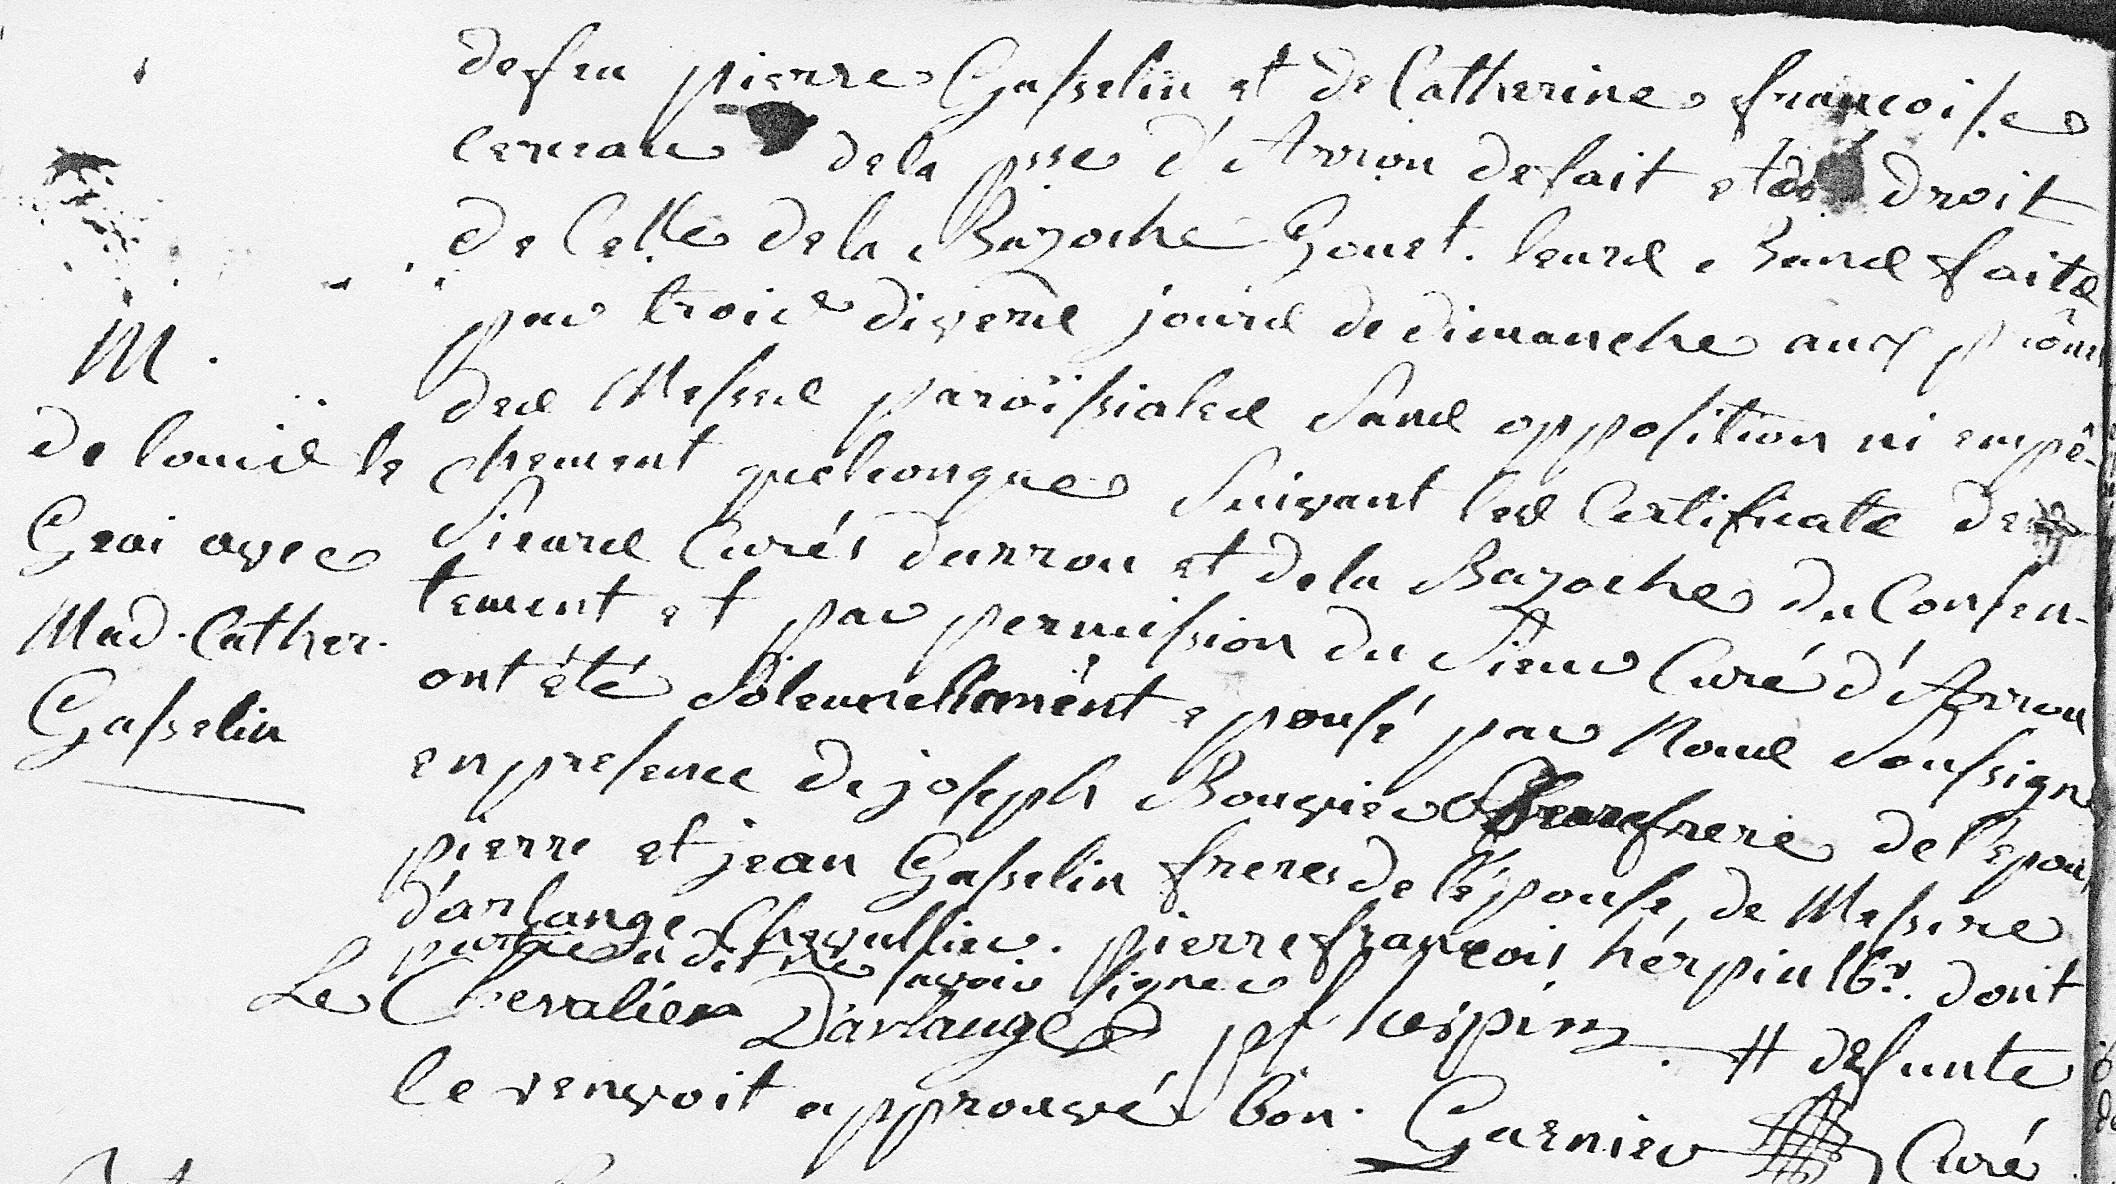 de feu pierre Gasselin et de Catherine francoise
de la psse d'Arrou de fait et de droit
de Celle de la Bazoche Gouet. leurs Bans faits
par trois divers jours de dimanche aux prônes
des Messes paroissiales Sans opposition ni empê-
chement quelconque Suivant les Certificats des
Sieurs Curés darrou et de la Bazoche du Consen-
tement et par permission du Sieur Curé d'Arrou
ont été Solennellement epousé par Nous Soussigné
en presence de joseph Bouvier frere de l'epoux
pierre et jean Gasselin freres de l'épouse, de Messire
d'arlange Chevallier. pierre francois hérpin dont
partie a dit ne savoir signer
Le Chevalier Darlange pf herpin # defunte
le renvoit approuvé bon. Garnier Curé
M.
de louis le
Grai avec
Mad. Cather.
Gasselin